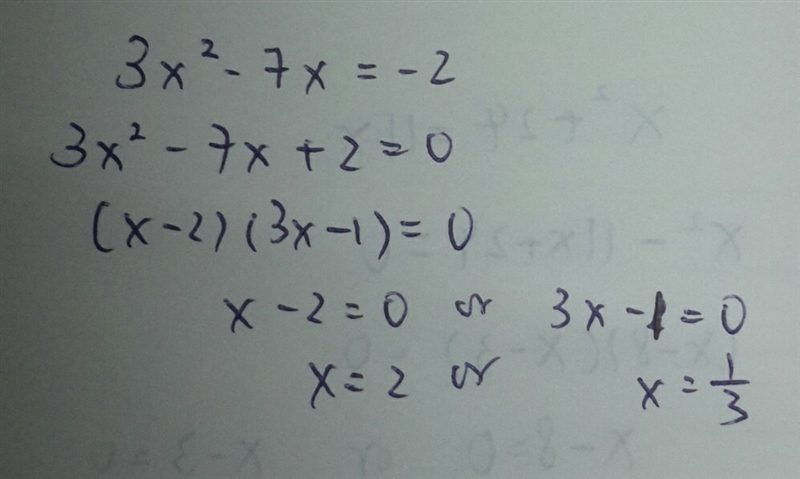 3x² - 7x = -2
3x² - 7x + 2 = 0
(x-2)(3x-1) = 0
x - 2 = 0 or 3x - 1 = 0
x = 2 or x = 1/3